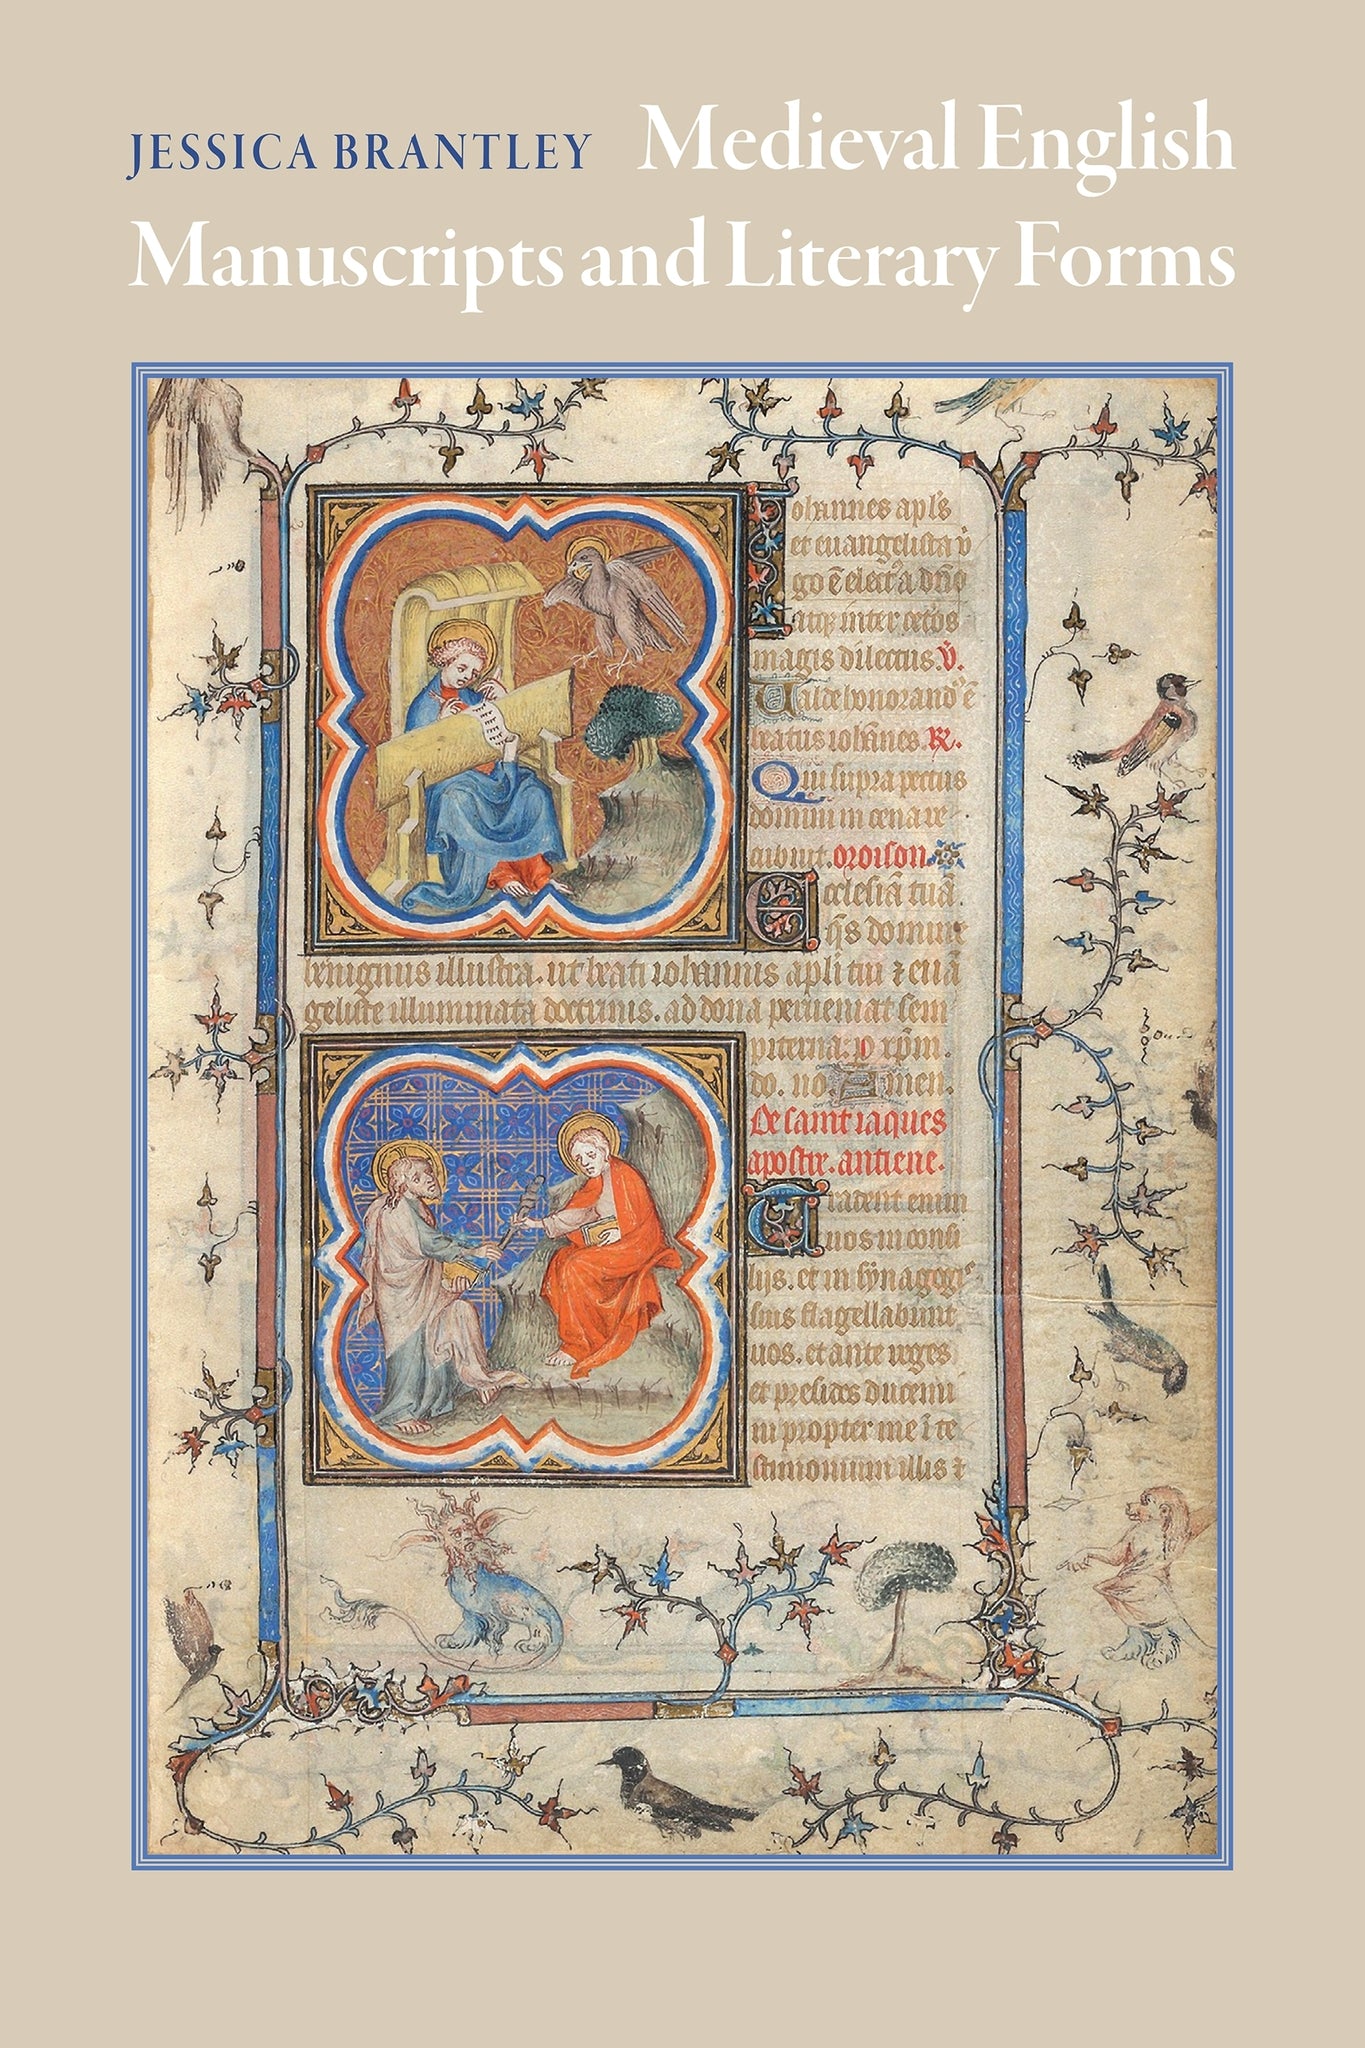 JESSICA BRANTLEY Medieval English
Manuscripts and Literary Forms
ohannes apl's
et euangelista v̄
go ē elect' a dn̄o
atq; inter cetos
magis dilectus. V̄.
Ualde honorand' ē
beatus ioh̄nes. R̄.
Qui supra pectus
domini in cena re
cubuit. oroison
Ecclesiā tuā
q̄s domine
benignus illustra. ut beati iohannis apl'i tui ⁊ euā
geliste illuminata doctrinis. ad dona perueniat sem
piterna. p xp̄m.
do. no. Amen.
De saint iaques
apostre. antiene.
Tradent enim
uos in consi
lijs. et in synagogis
suis flagellabunt
uos. et ante reges
et presides ducemi
ni propter me ī te
stimonium illis ⁊